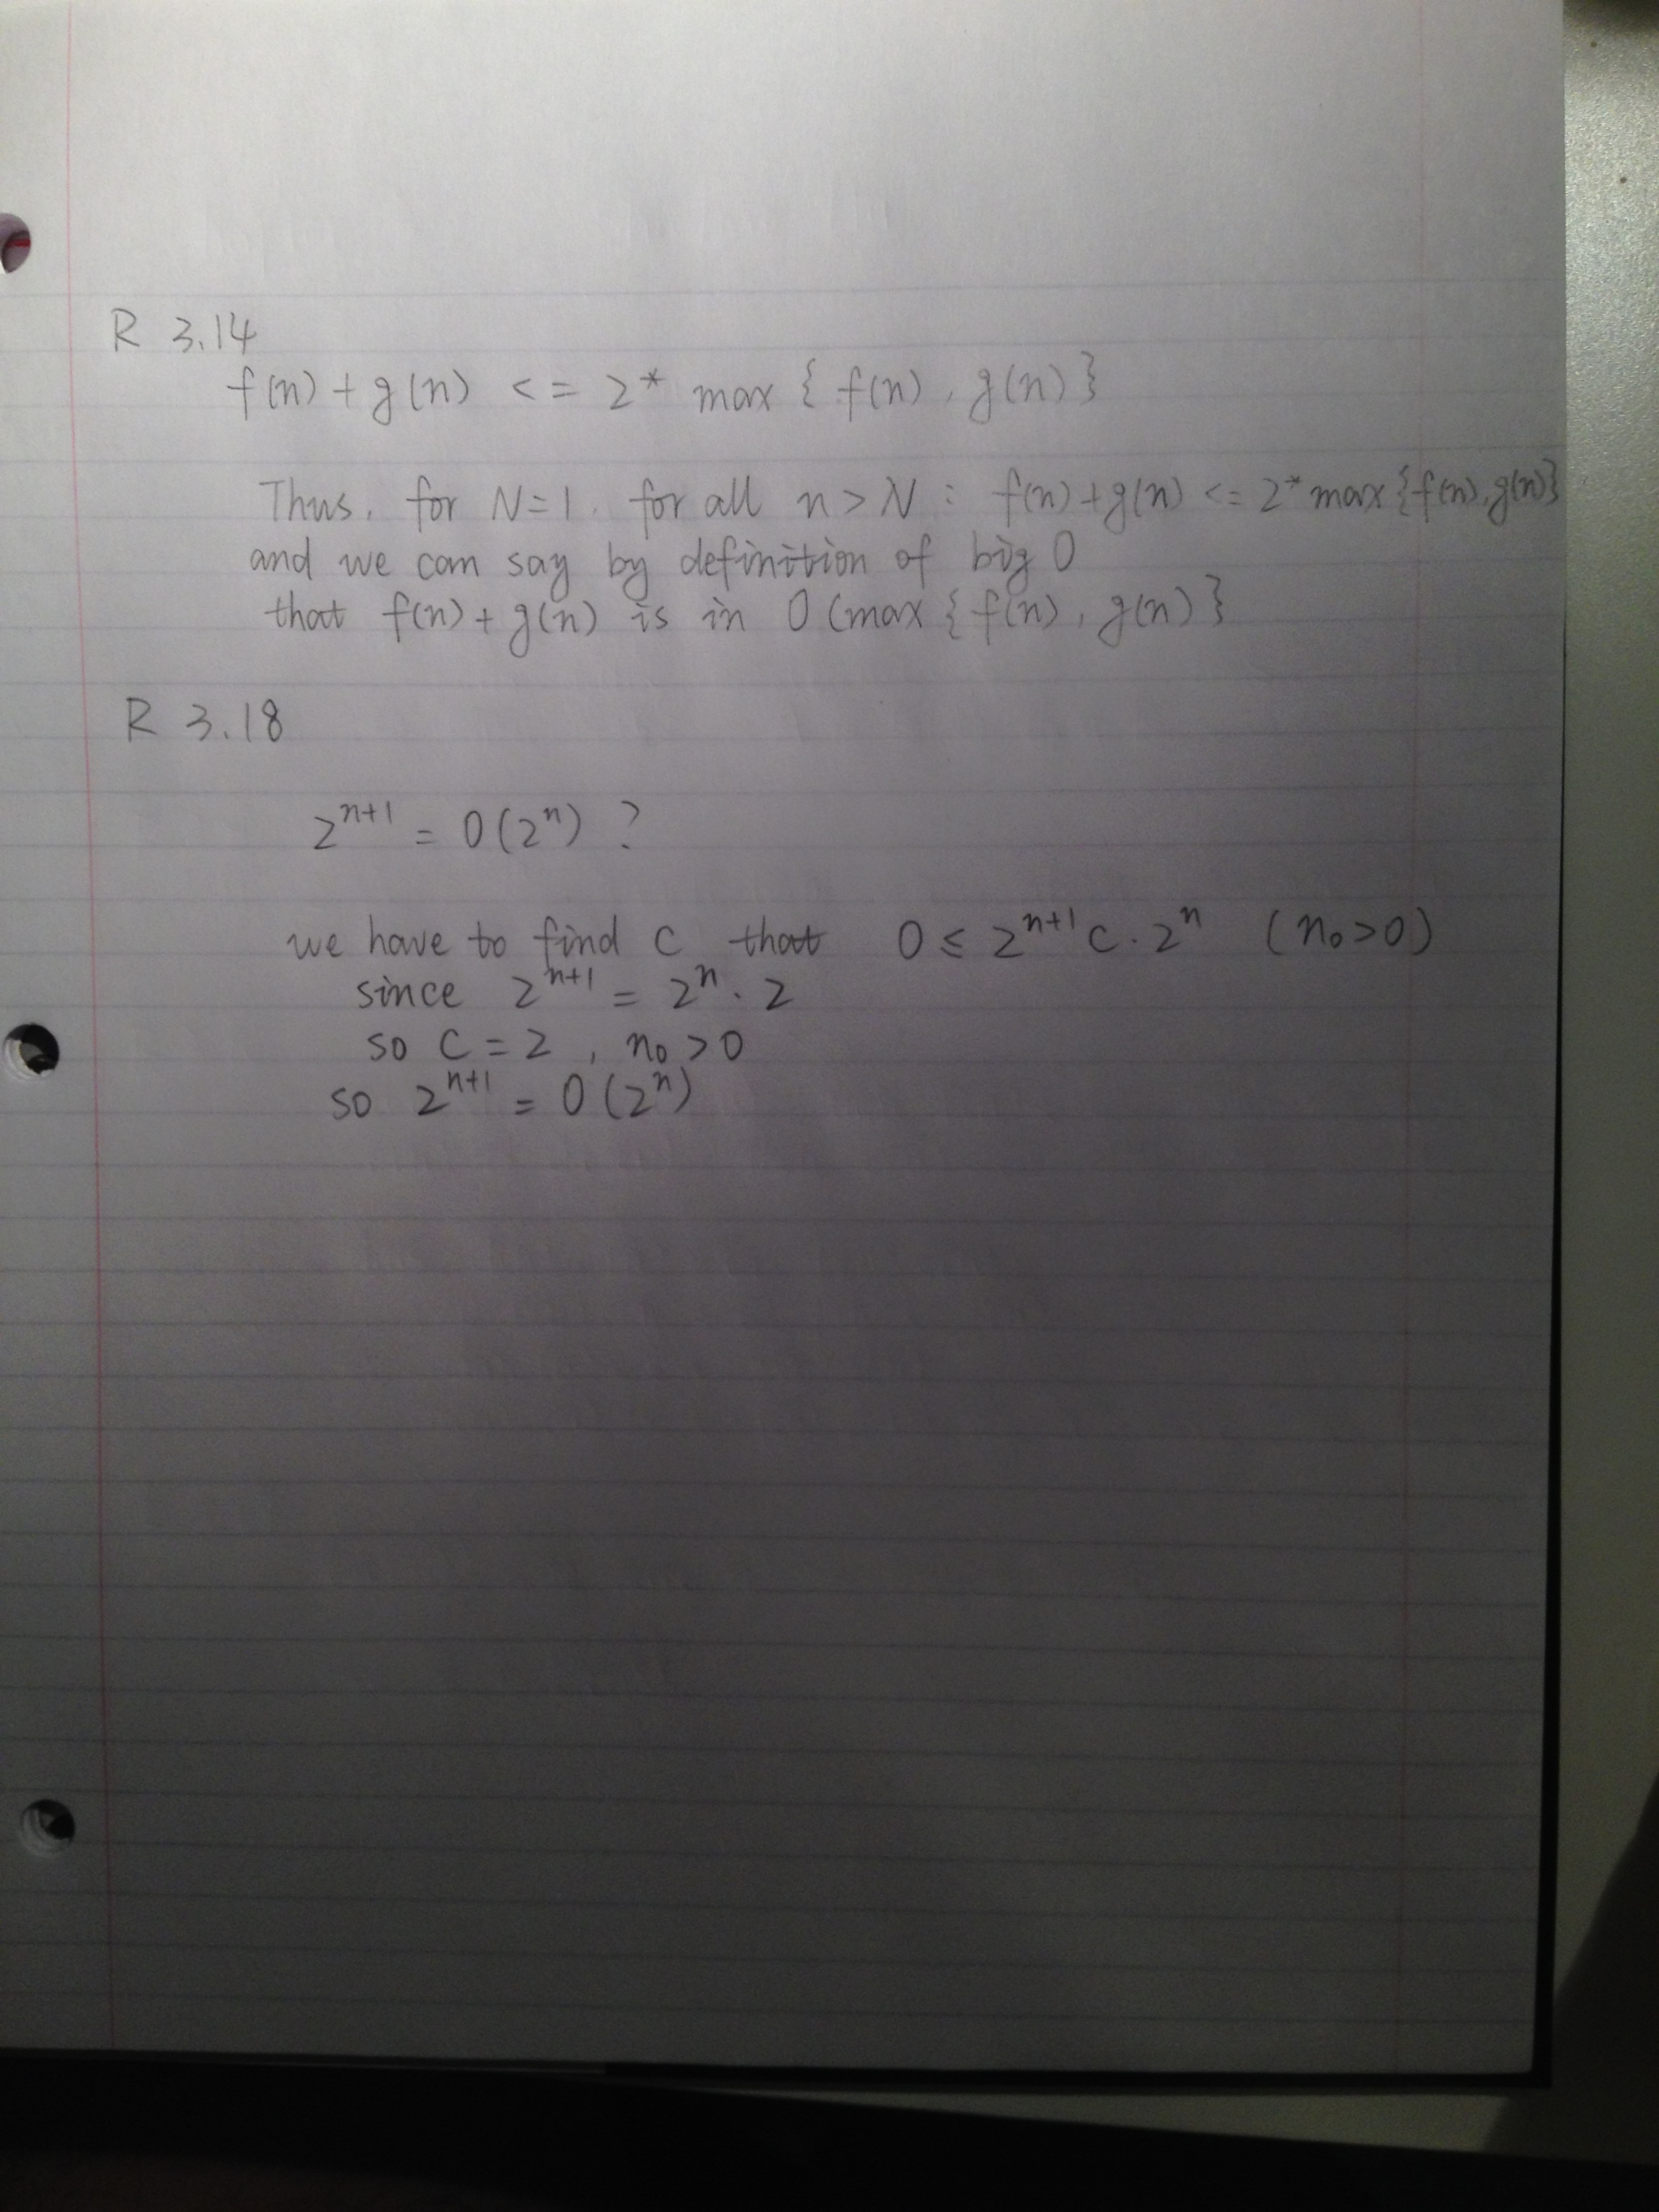 R 3.14
f(n) + g(n) <= 2* max { f(n), g(n) }
Thus, for N=1, for all n > N : f(n)+g(n) <= 2* max {f(n), g(n)}
and we can say by definition of big O
that f(n) + g(n) is in O (max { f(n), g(n) }
R 3.18
2^{n+1} = O(2^n) ?
we have to find c that 0 ≤ 2^{n+1} c · 2^n (n₀ > 0)
since 2^{n+1} = 2^n · 2
so c = 2 , n₀ > 0
so 2^{n+1} = O(2^n)